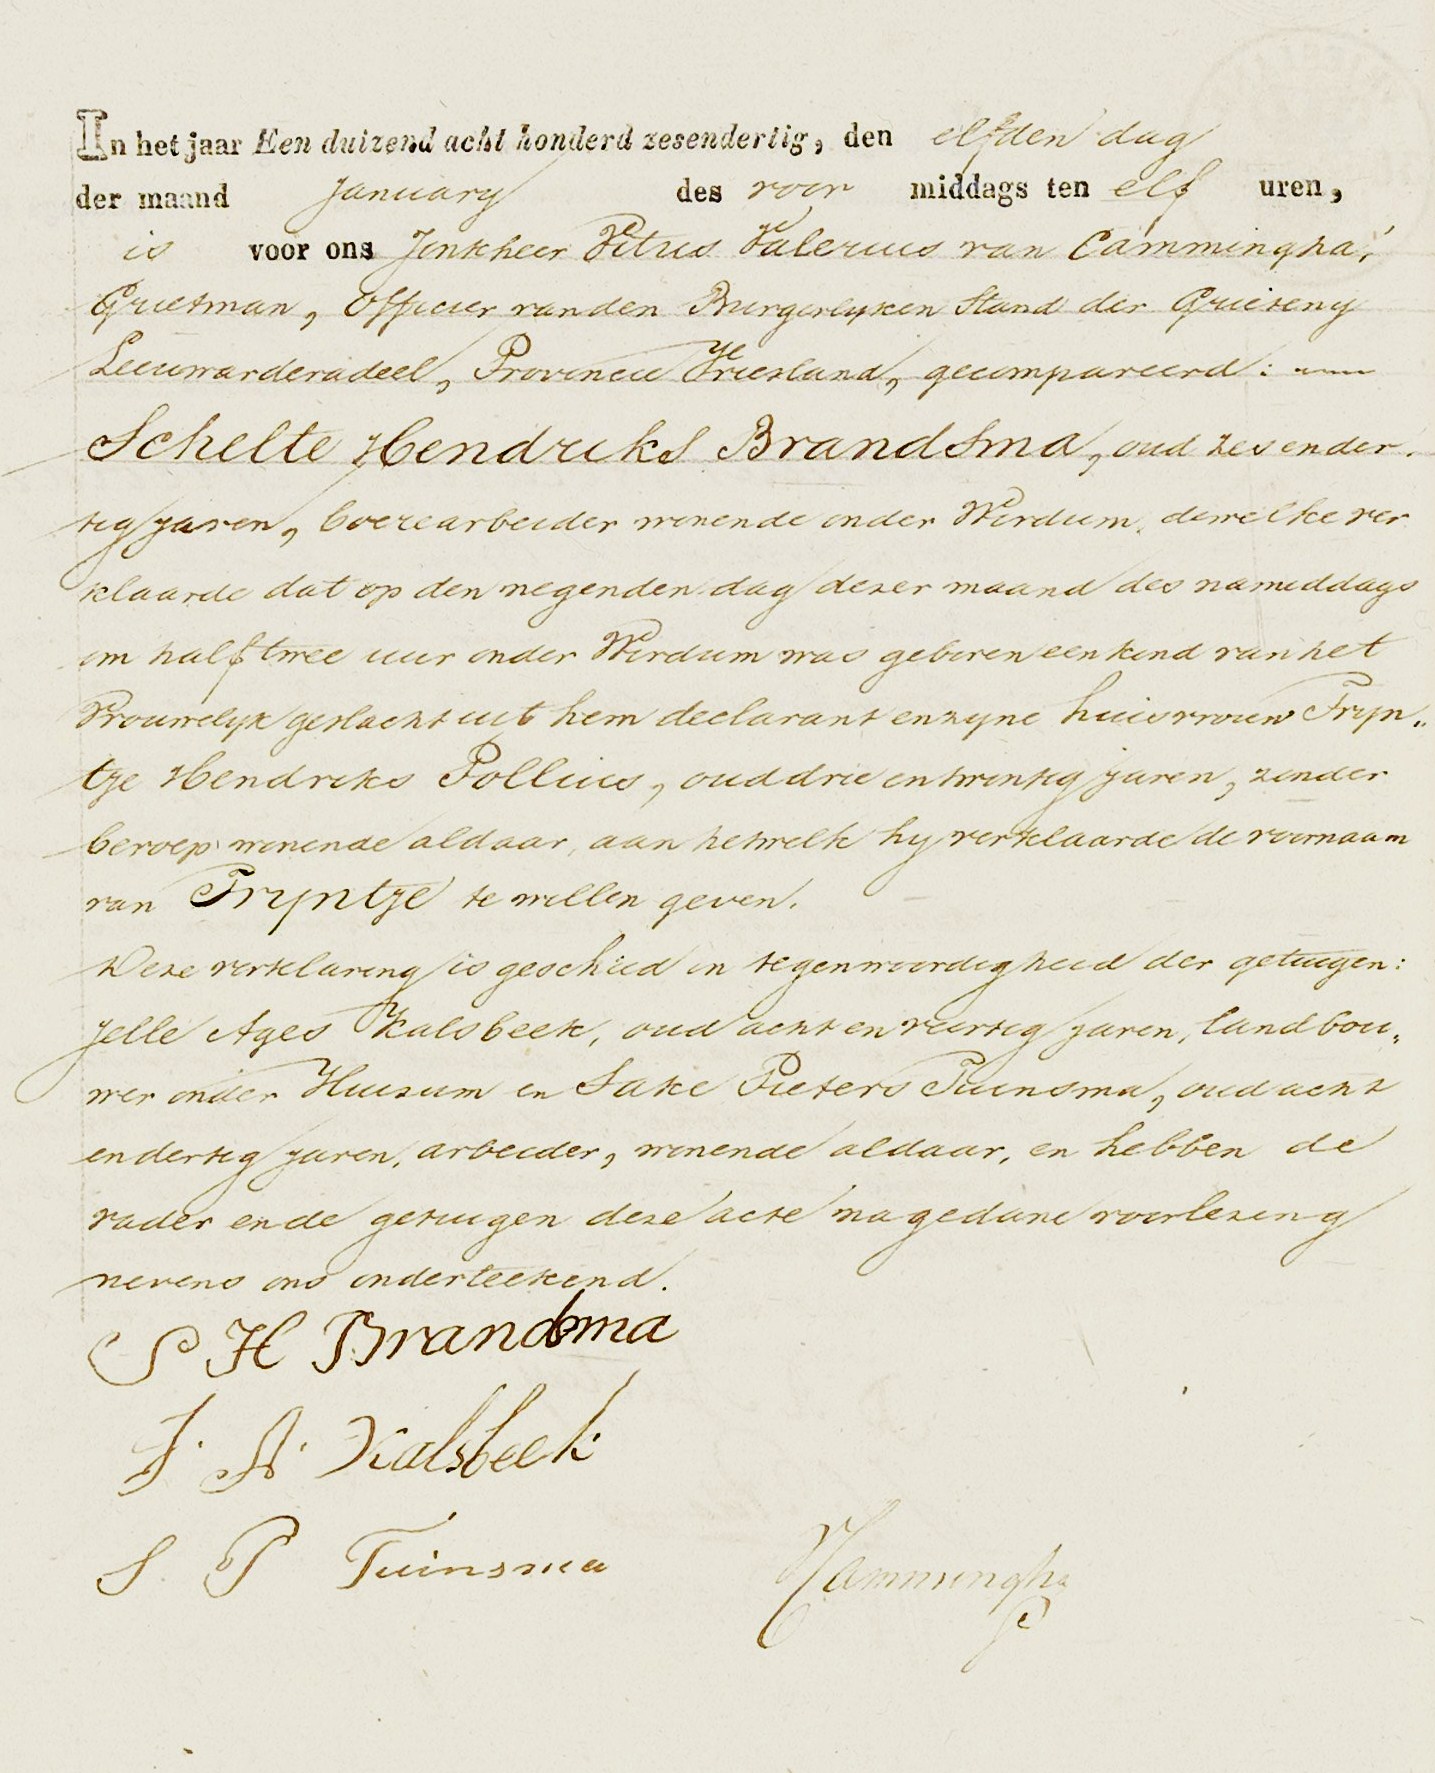 In het jaar Een duizend acht honderd zesendertig, den elfden dag
der maand January des voor middags ten elf uren,
is voor ons Jonkheer Petrus Valerius van Cammingha,
Grietman, Officier van den Burgerlyken Stand der Grieteny
Leeuwarderadeel, Provincie Vriesland, gecompareerd:
Schelte Hendriks Brandsma, oud zesender-
tig jaren, boerearbeider wonende onder Wirdum, dewelke ver
klaarde dat op den negenden dag dezer maand des namiddags
om half twee uur onder Wirdum was geboren een kind van het
Vrouwelyk geslacht uit hem declarant en zyne huisvrouw Tryn„
tje Hendriks Pollius, oud drie en twintig jaren, zonder
beroep wonende aldaar, aan hetwelk hy verklaarde de voornaam
van Tryntje te willen geven.
Deze verklaring is geschied in tegenwoordigheid der getuigen:
Jelle Ages Kalsbeek, oud acht en veertig jaren, landbou„
wer onder Huizum en Sake Pieters Tuinsma, oud acht
en dertig jaren, arbeider, wonende aldaar, en hebben de
vader en de getuigen deze acte na gedane voorlezing
nevens ons onderteekend.
S H Brandsma
J. A. Kalsbeek
S. P Tuinsma
Cammingha